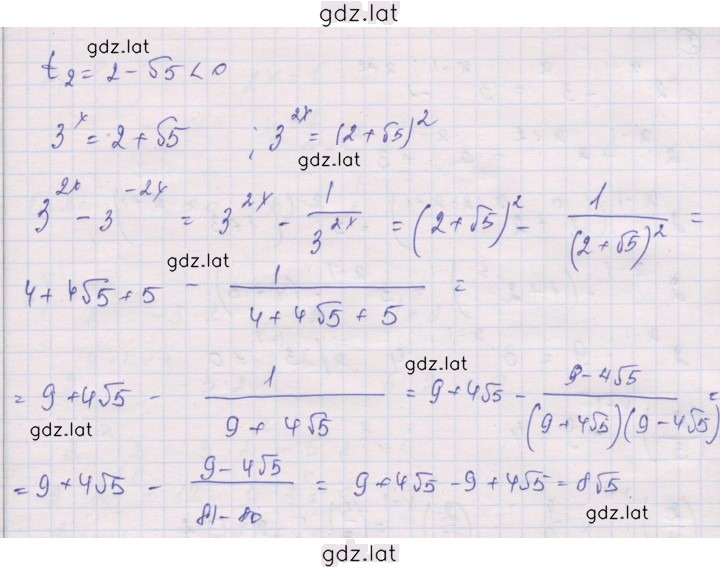 gdz.lat
gdz.lat
t₂ = 2 - √5 < 0
3^x = 2 + √5 ; 3^{2x} = (2 + √5)^2
gdz.lat
3^{2x} - 3^{-2x} = 3^{2x} - 1/3^{2x} = (2 + √5)^2 - 1/(2 + √5)^2 =
gdz.lat
4 + 4√5 + 5 - 1/(4 + 4√5 + 5) =
gdz.lat
= 9 + 4√5 - 1/(9 + 4√5) = 9 + 4√5 - (9 - 4√5)/((9 + 4√5)(9 - 4√5)) =
gdz.lat
= 9 + 4√5 - (9 - 4√5)/(81 - 80) = 9 + 4√5 - 9 + 4√5 = 8√5
gdz.lat
gdz.lat